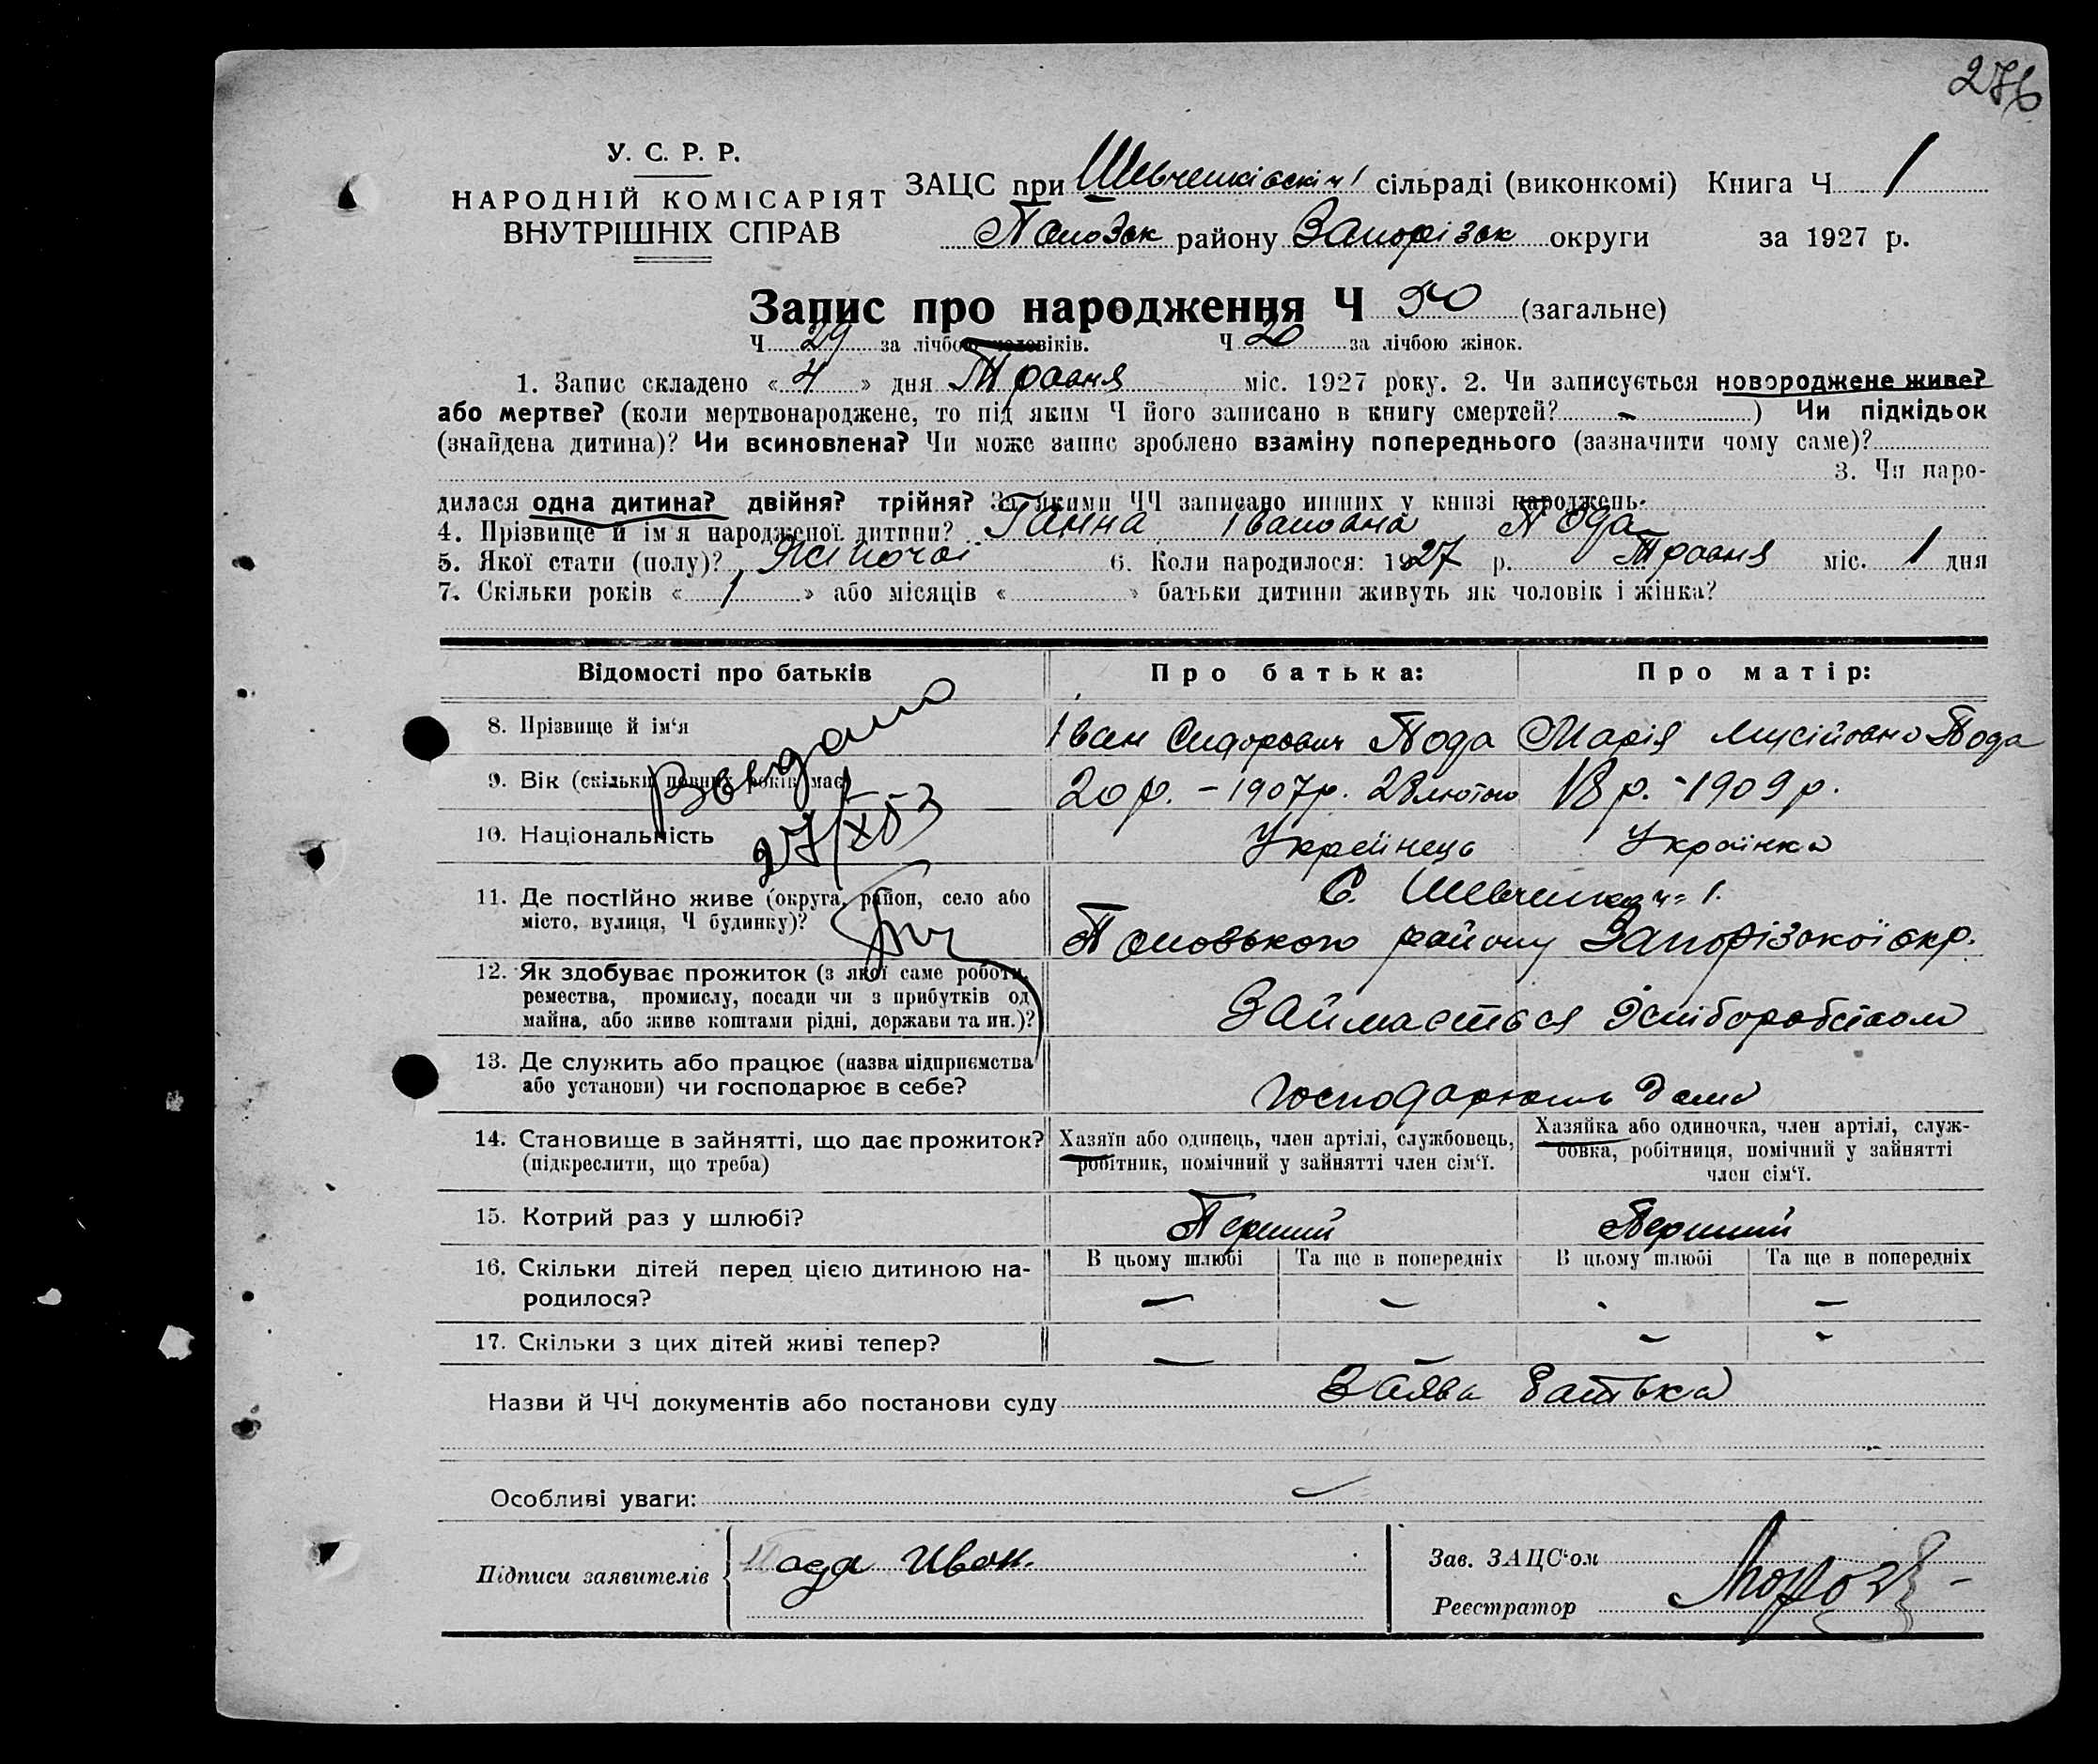 276
У. С. Р. Р.
НАРОДНІЙ КОМІСАРІЯТ
ВНУТРІШНІХ СПРАВ
ЗАЦС при Шевченківскій 1 сільраді (виконкомі) Книга Ч 1
району Запорізьк округи за 1927 р.
Запис про народження Ч 50 (загальне)
Ч 29 за лічбою чоловіків. Ч 20 за лічбою жінок.
1. Запис складено « 4 » дня Травня міс. 1927 року. 2. Чи записується новороджене живе?
або мертве? (коли мертвонароджене, то під яким Ч його записано в книгу смертей? - ) Чи підкідьок
(знайдена дитина)? Чи всиновлена? Чи може запис зроблено взаміну попереднього (зазначити чому саме)?
3. Чи наро-
дилася одна дитина? двійня? трійня? За якими ЧЧ записано инших у книзі народжень-
4. Прізвище й ім'я народженої дитини? Ганна Івановна Пода
5. Якої стати (полу)? Жіночої 6. Коли народилося: 1927 р. Травня міс. 1 дня
7. Скільки років « 1 » або місяців « » батьки дитини живуть як чоловік і жінка?
Відомості про батьків Про батька: Про матір:
8. Прізвище й ім'я Іван Сидорович Пода Марія Мусійовна Пода
9. Вік (скільки повних років має) 20 р. - 1907 р. 28 лютого 18 р. - 1909 р.
Выдано
27/XI 53
10. Національність Українець Українка
11. Де постійно живе (округа, район, село або
місто, вулиця, Ч будинку)?
С. Шевченка ч= 1.
району Запорізокої окр.
12. Як здобуває прожиток (з якої саме роботи,
ремества, промислу, посади чи з прибутків од
майна, або живе коштами рідні, держави та ин.)?
Займаеться хліборобством
13. Де служить або працює (назва підприємства
або установи) чи господарює в себе?
Господарюють дома
14. Становище в зайнятті, що дає прожиток?
(підкреслити, що треба)
Хазяїн або одинець, член артілі, службовець,
робітник, помічний у зайнятті член сім'ї.
Хазяйка або одиночка, член артілі, служ-
бовка, робітниця, помічний у зайнятті
член сім'ї.
15. Котрий раз у шлюбі? Перший Перший
16. Скільки дітей перед цією дитиною на-
родилося?
В цьому шлюбі Та ще в попередніх В цьому шлюбі Та ще в попередніх
— - - —
17. Скільки з цих дітей живі тепер? — - - -
Назви й ЧЧ документів або постанови суду Заява батька
Особливі уваги: -
Підписи заявителів Пода Иван.
Зав. ЗАЦС'ом
Реєстратор Мороз